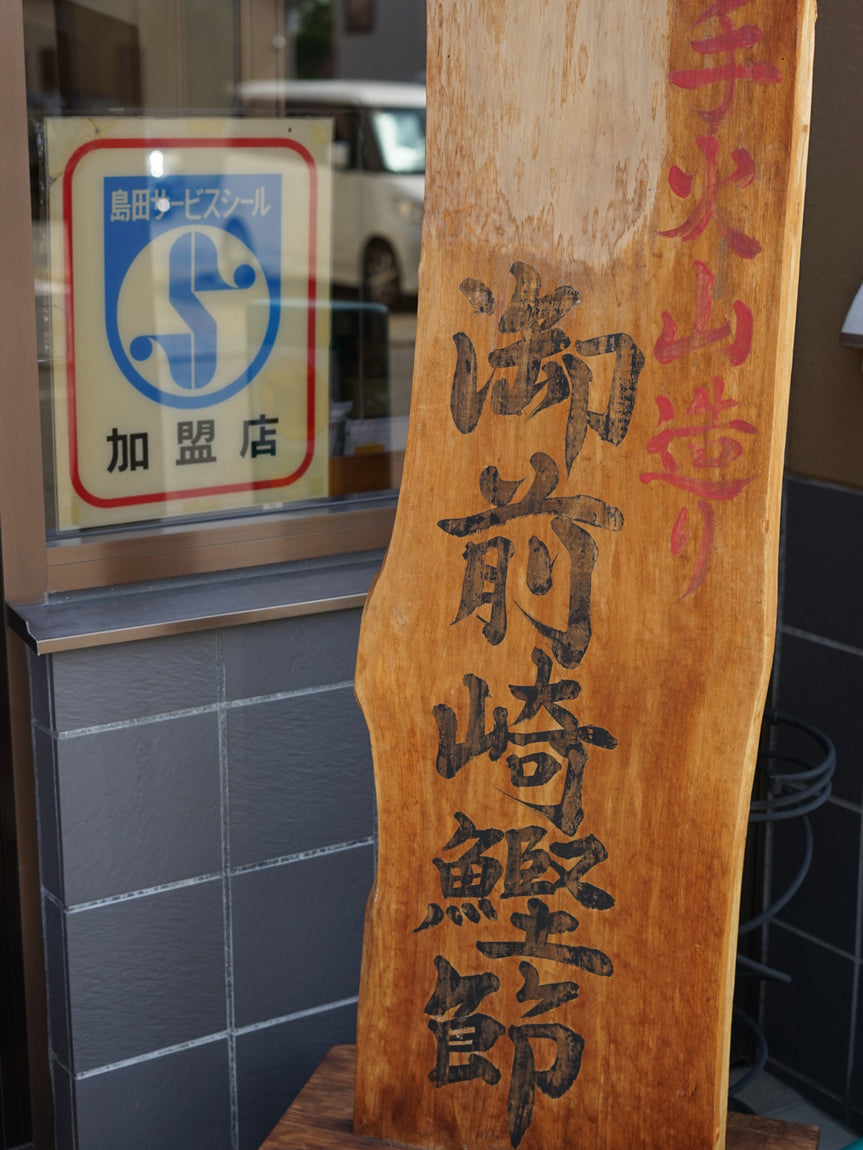 島田サービスシール
S
加盟店
手火山造り
御前崎鰹節